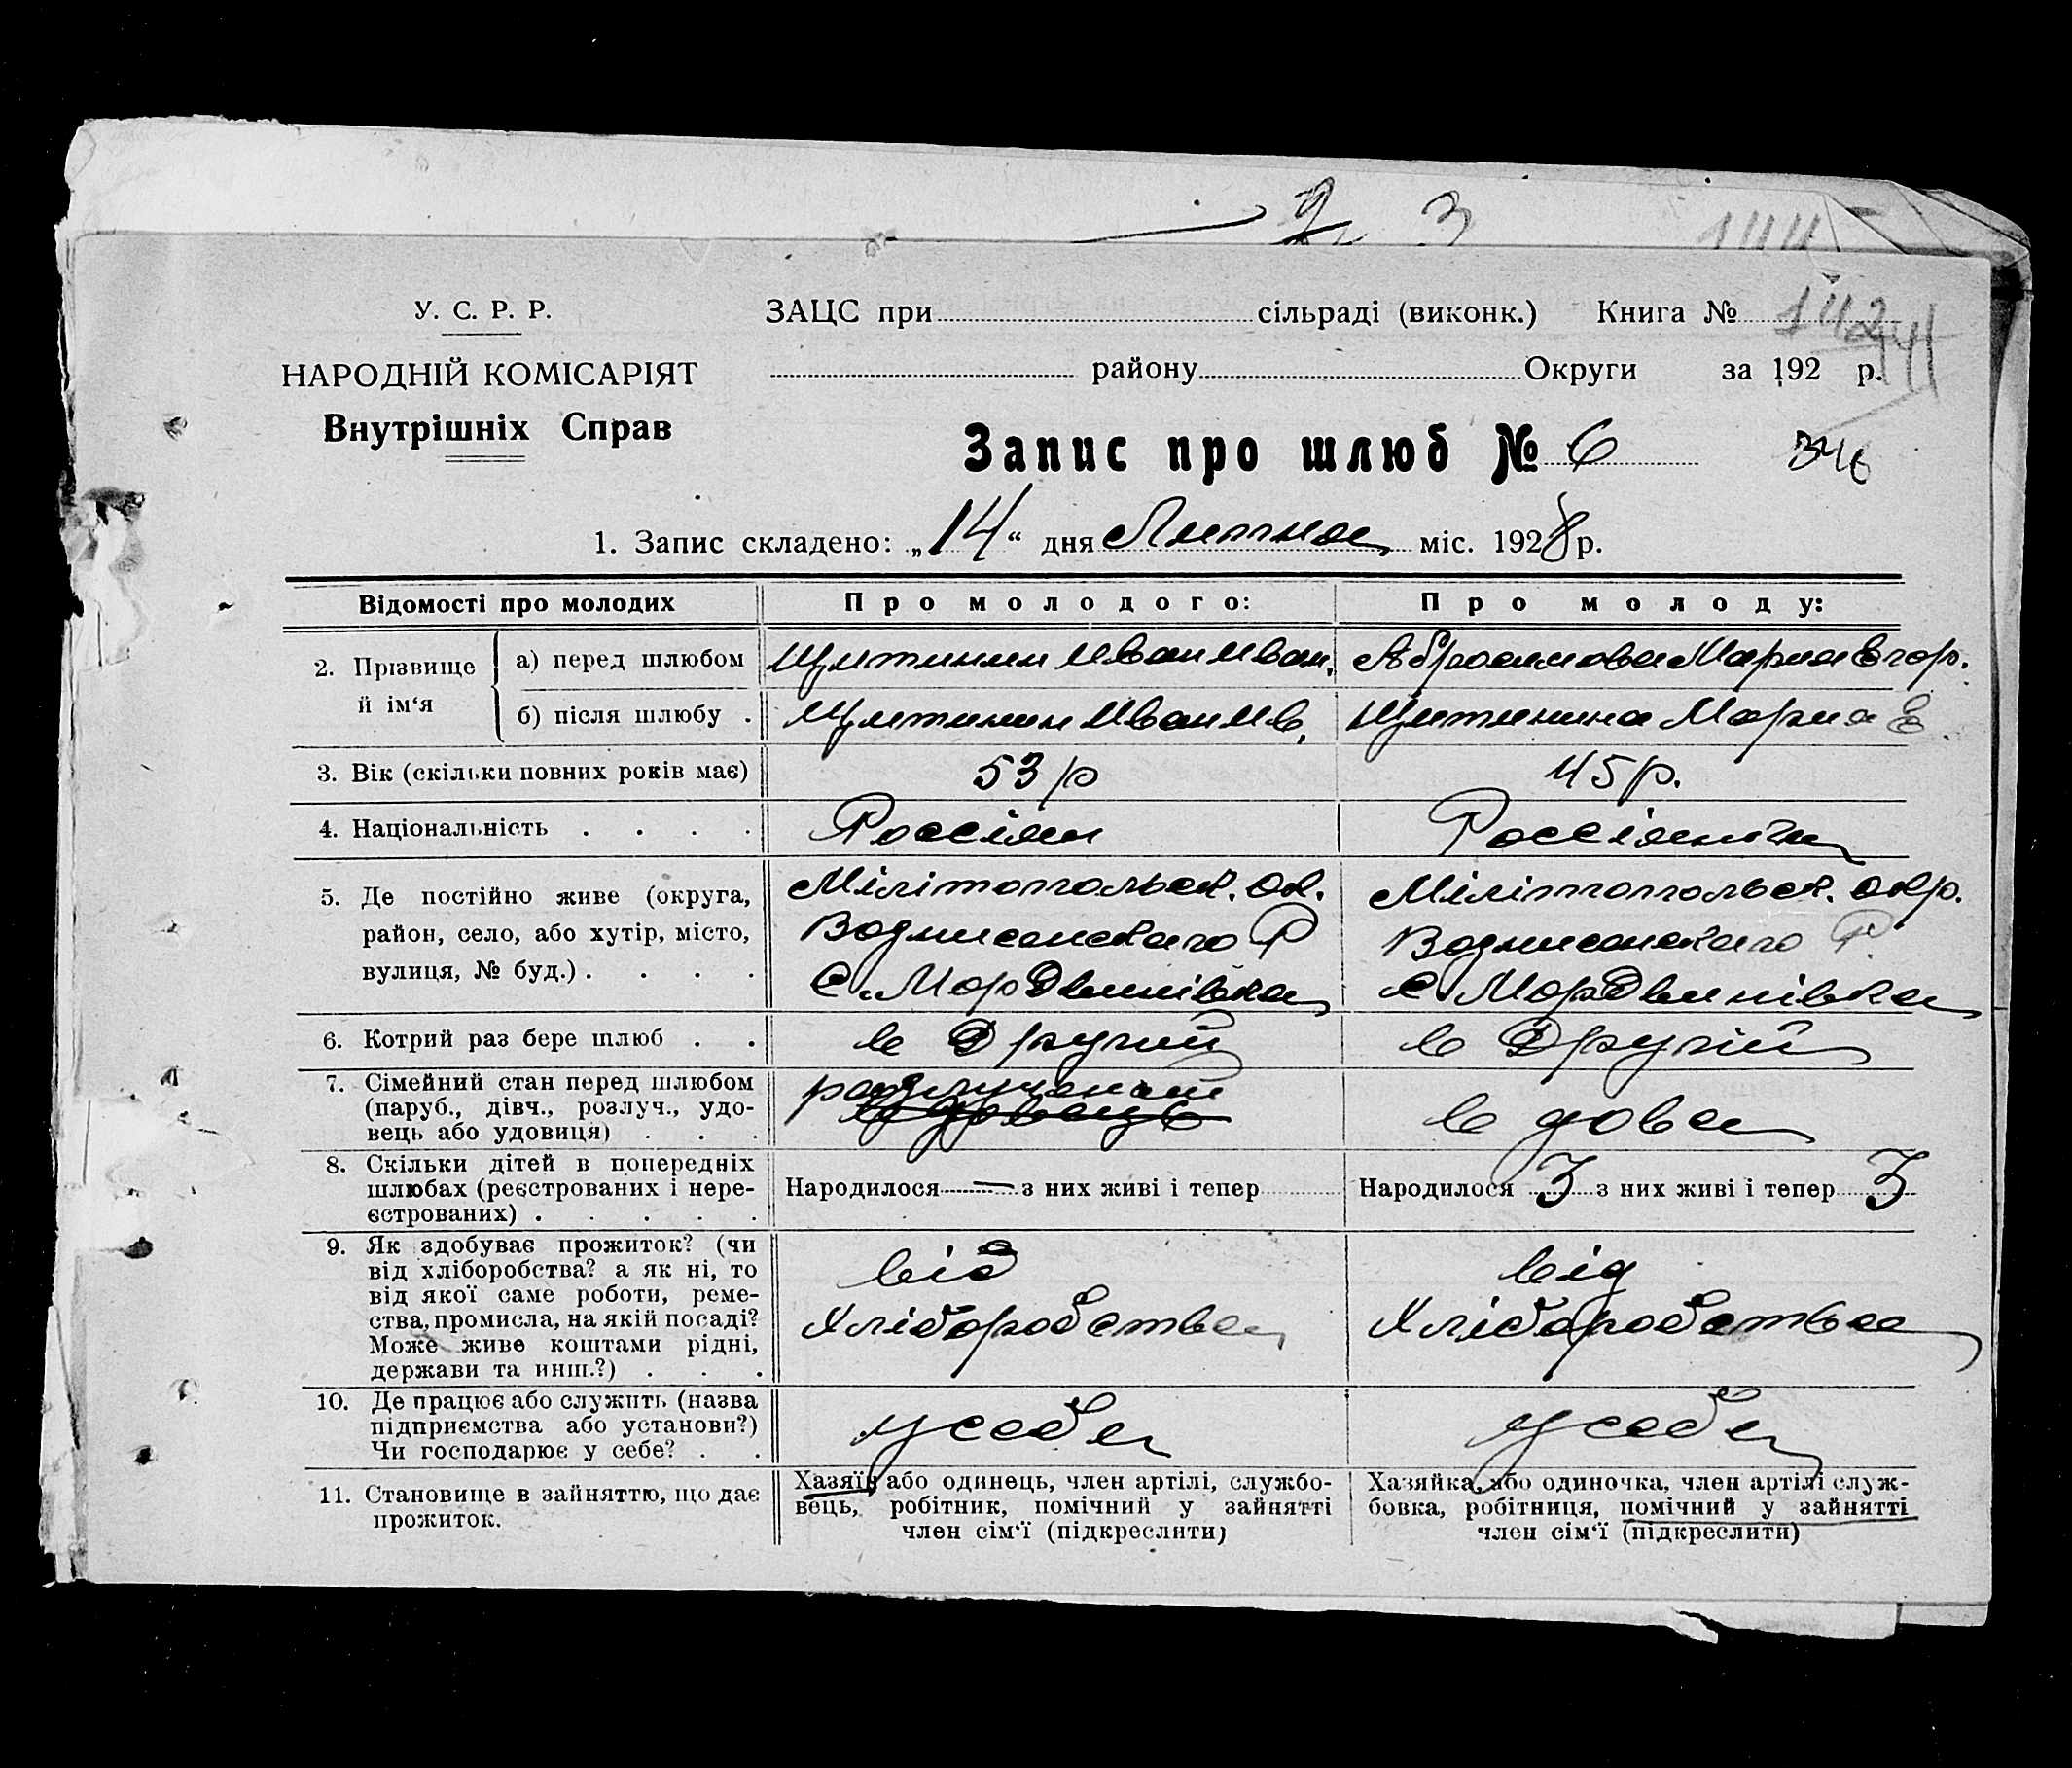 2 3
144
У. С. Р. Р.
НАРОДНІЙ КОМІСАРІЯТ
Внутрішніх Справ
ЗАЦС при сільраді (виконк.) Книга № 142
району Округи за 192 р.
Запис про шлюб № 6
346
1. Запис складено: „14“ дня Лютня міс. 1928 р.
Відомості про молодих
Про молодого:
Про молоду:
2. Прізвище й ім‘я
а) перед шлюбом
Щитинин Иван Иван.
Абраамова Мария Егор.
б) після шлюбу .
Щитинин Иван Ив.
Щитинина Мария Е
3. Вік (скільки повних років має)
53 р
45 р.
4. Національність . . . .
Россіян
Россіянка
5. Де постійно живе (округа,
район, село, або хутір, місто,
вулиця, № буд.) . . . .
Мілітопольск. ок.
Р
с. Мордвинівка
Мілітопольск. окр.
Р.
с Мордвинівка
6. Котрий раз бере шлюб . .
в Другий
в Другій
7. Сімейний стан перед шлюбом
(паруб., дівч., розлуч., удо-
вець або удовиця) . . .
разлученій
вдовець
вдова
8. Скільки дітей в попередніх
шлюбах (реєстрованих і нере-
єстрованих) . . . . .
Народилося — з них живі і тепер
Народилося 3 з них живі і тепер 3
9. Як здобуває прожиток? (чи
від хліборобства? а як ні, то
від якої саме роботи, реме-
ства, промисла, на якій посаді?
Може живе коштами рідні,
держави та инш.?) . . .
від
хліборобства
від
хліборобства
10. Де працює або служить (назва
підприємства або установи?)
Чи господарює у себе? . .
усебе
усебе
11. Становище в зайняттю, що дає
прожиток.
Хазяїн або одинець, член артілі, службо-
вець, робітник, помічний у зайнятті
член сім‘ї (підкреслити)
Хазяйка, або одиночка, член артілі служ-
бовка, робітниця, помічний у зайнятті
член сім‘ї (підкреслити)